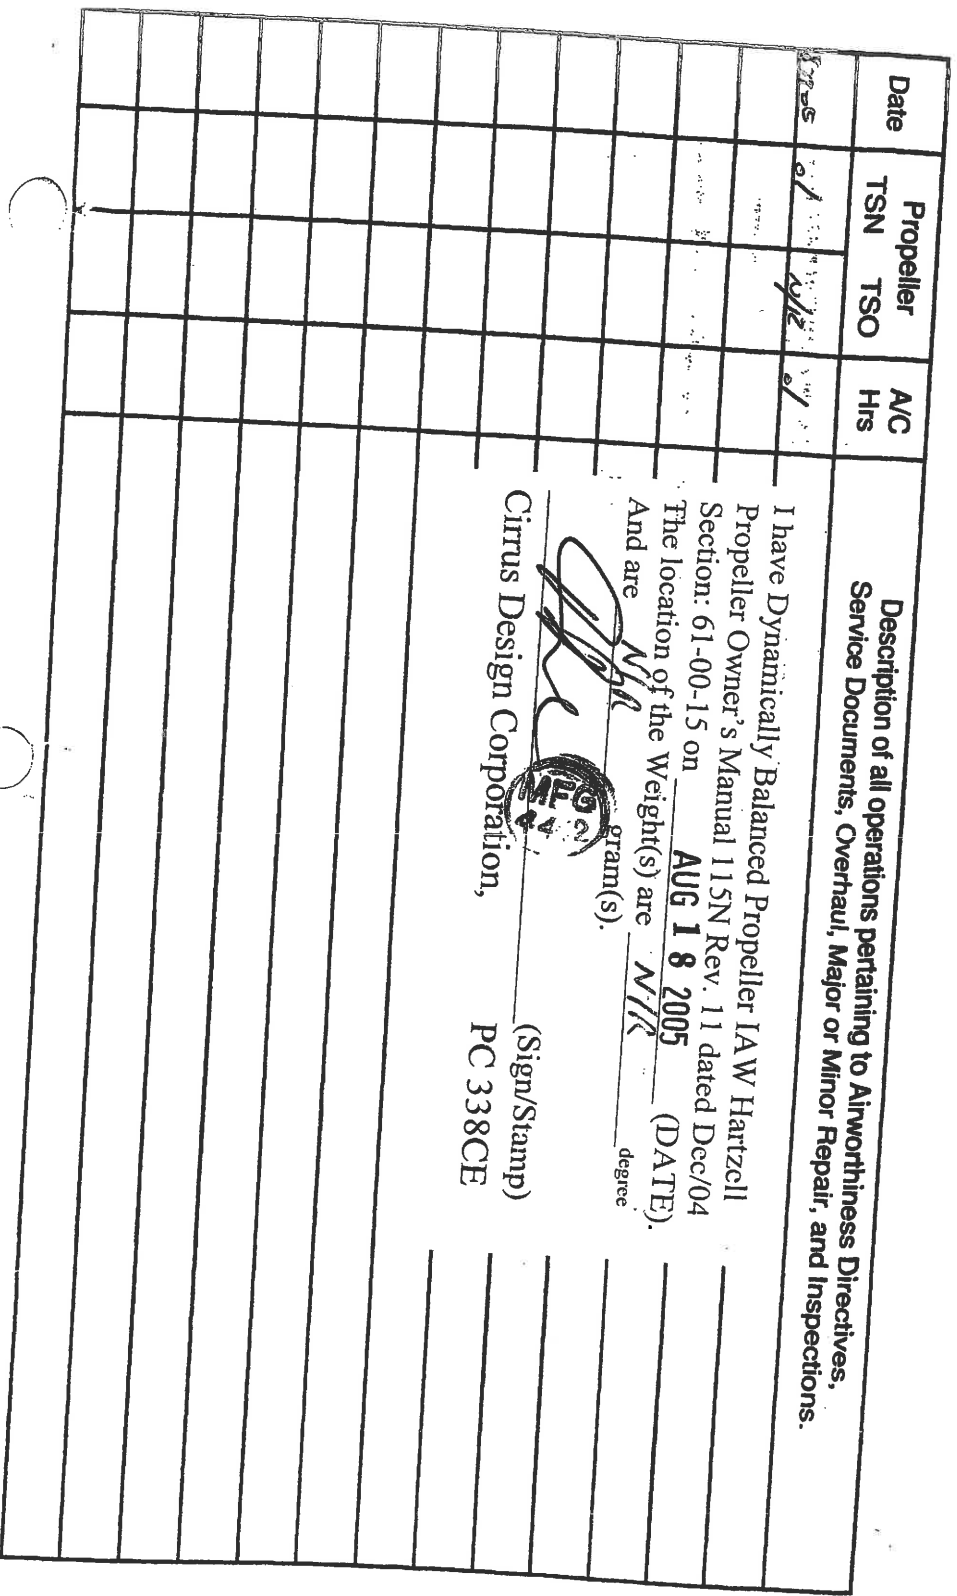 Date
Propeller
TSN TSO
A/C
Hrs
Description of all operations pertaining to Airworthiness Directives,
Service Documents, Overhaul, Major or Minor Repair, and Inspections.
.1 N/R .1
I have Dynamically Balanced Propeller IAW Hartzell
Propeller Owner's Manual 115N Rev. 11 dated Dec/04
Section: 61-00-15 on AUG 18 2005 (DATE).
The location of the Weight(s) are N/R degree
And are N/R gram(s).
MFG
442
(Sign/Stamp)
Cirrus Design Corporation, PC 338CE